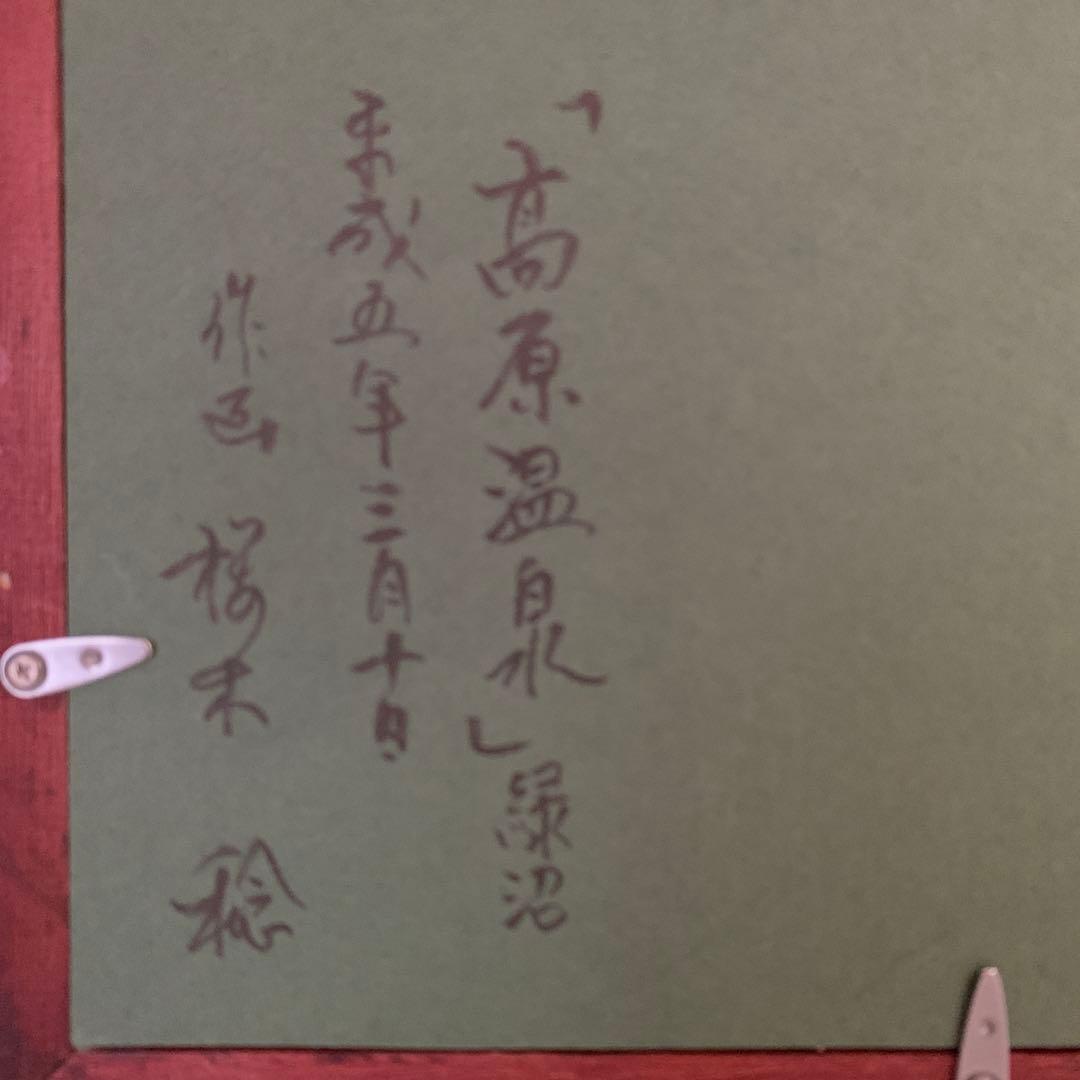 「高原温泉」緑沼
平成五年三月十日
作画 桜木 稔